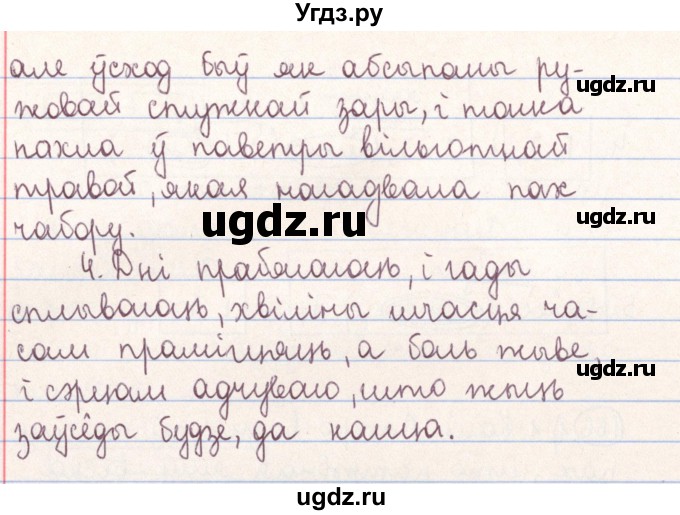 Угдз.ру
але ўсход быў як абсыпаны ру-
жовай стужкай зары, і тонка
пахла ў паветры вільготнай
травой, якая нагадвала пах
чабору.
4. Дні прабягаюць, і гады
сплываюць, хвіліны шчасця ча-
сам прамільгнуць, а боль жыве,
і сэрцам адчуваю, што жыць
заўсёды будзе, да канца.
ugdz.ru
ugdz.ru
ugdz.ru
ugdz.ru
ugdz.ru
ugdz.ru
ugdz.ru
ugdz.ru